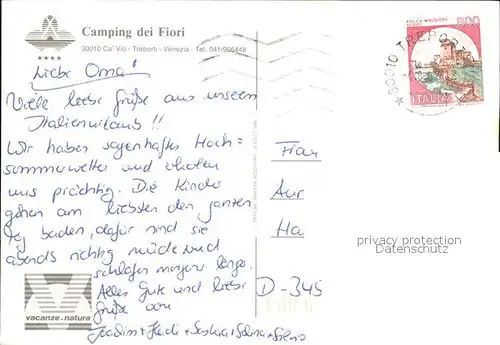 Camping dei Fiori
30010 Ca' Vio - Treporti - Venezia - Tel. 041/966448
Liebe Oma!
Viele liebe Grüße aus unserem
Italienurlaub!!
Wir haben sagenhaftes Hoch=
sommerwetter und erholen
uns prächtig. Die Kinder
gehen am liebsten den ganzen
Tag baden, dafür sind sie
abends richtig müde und
schlafen morgens lange.
Alles Gute und liebe
Grüße von
Joachim + Heidi + Saskia + +
vacanze-natura
ROCCA MAGGIORE
800
ITALIA
30010 TREPORTI
Frau
Aur
Ha
D-345
privacy protection
Datenschutz